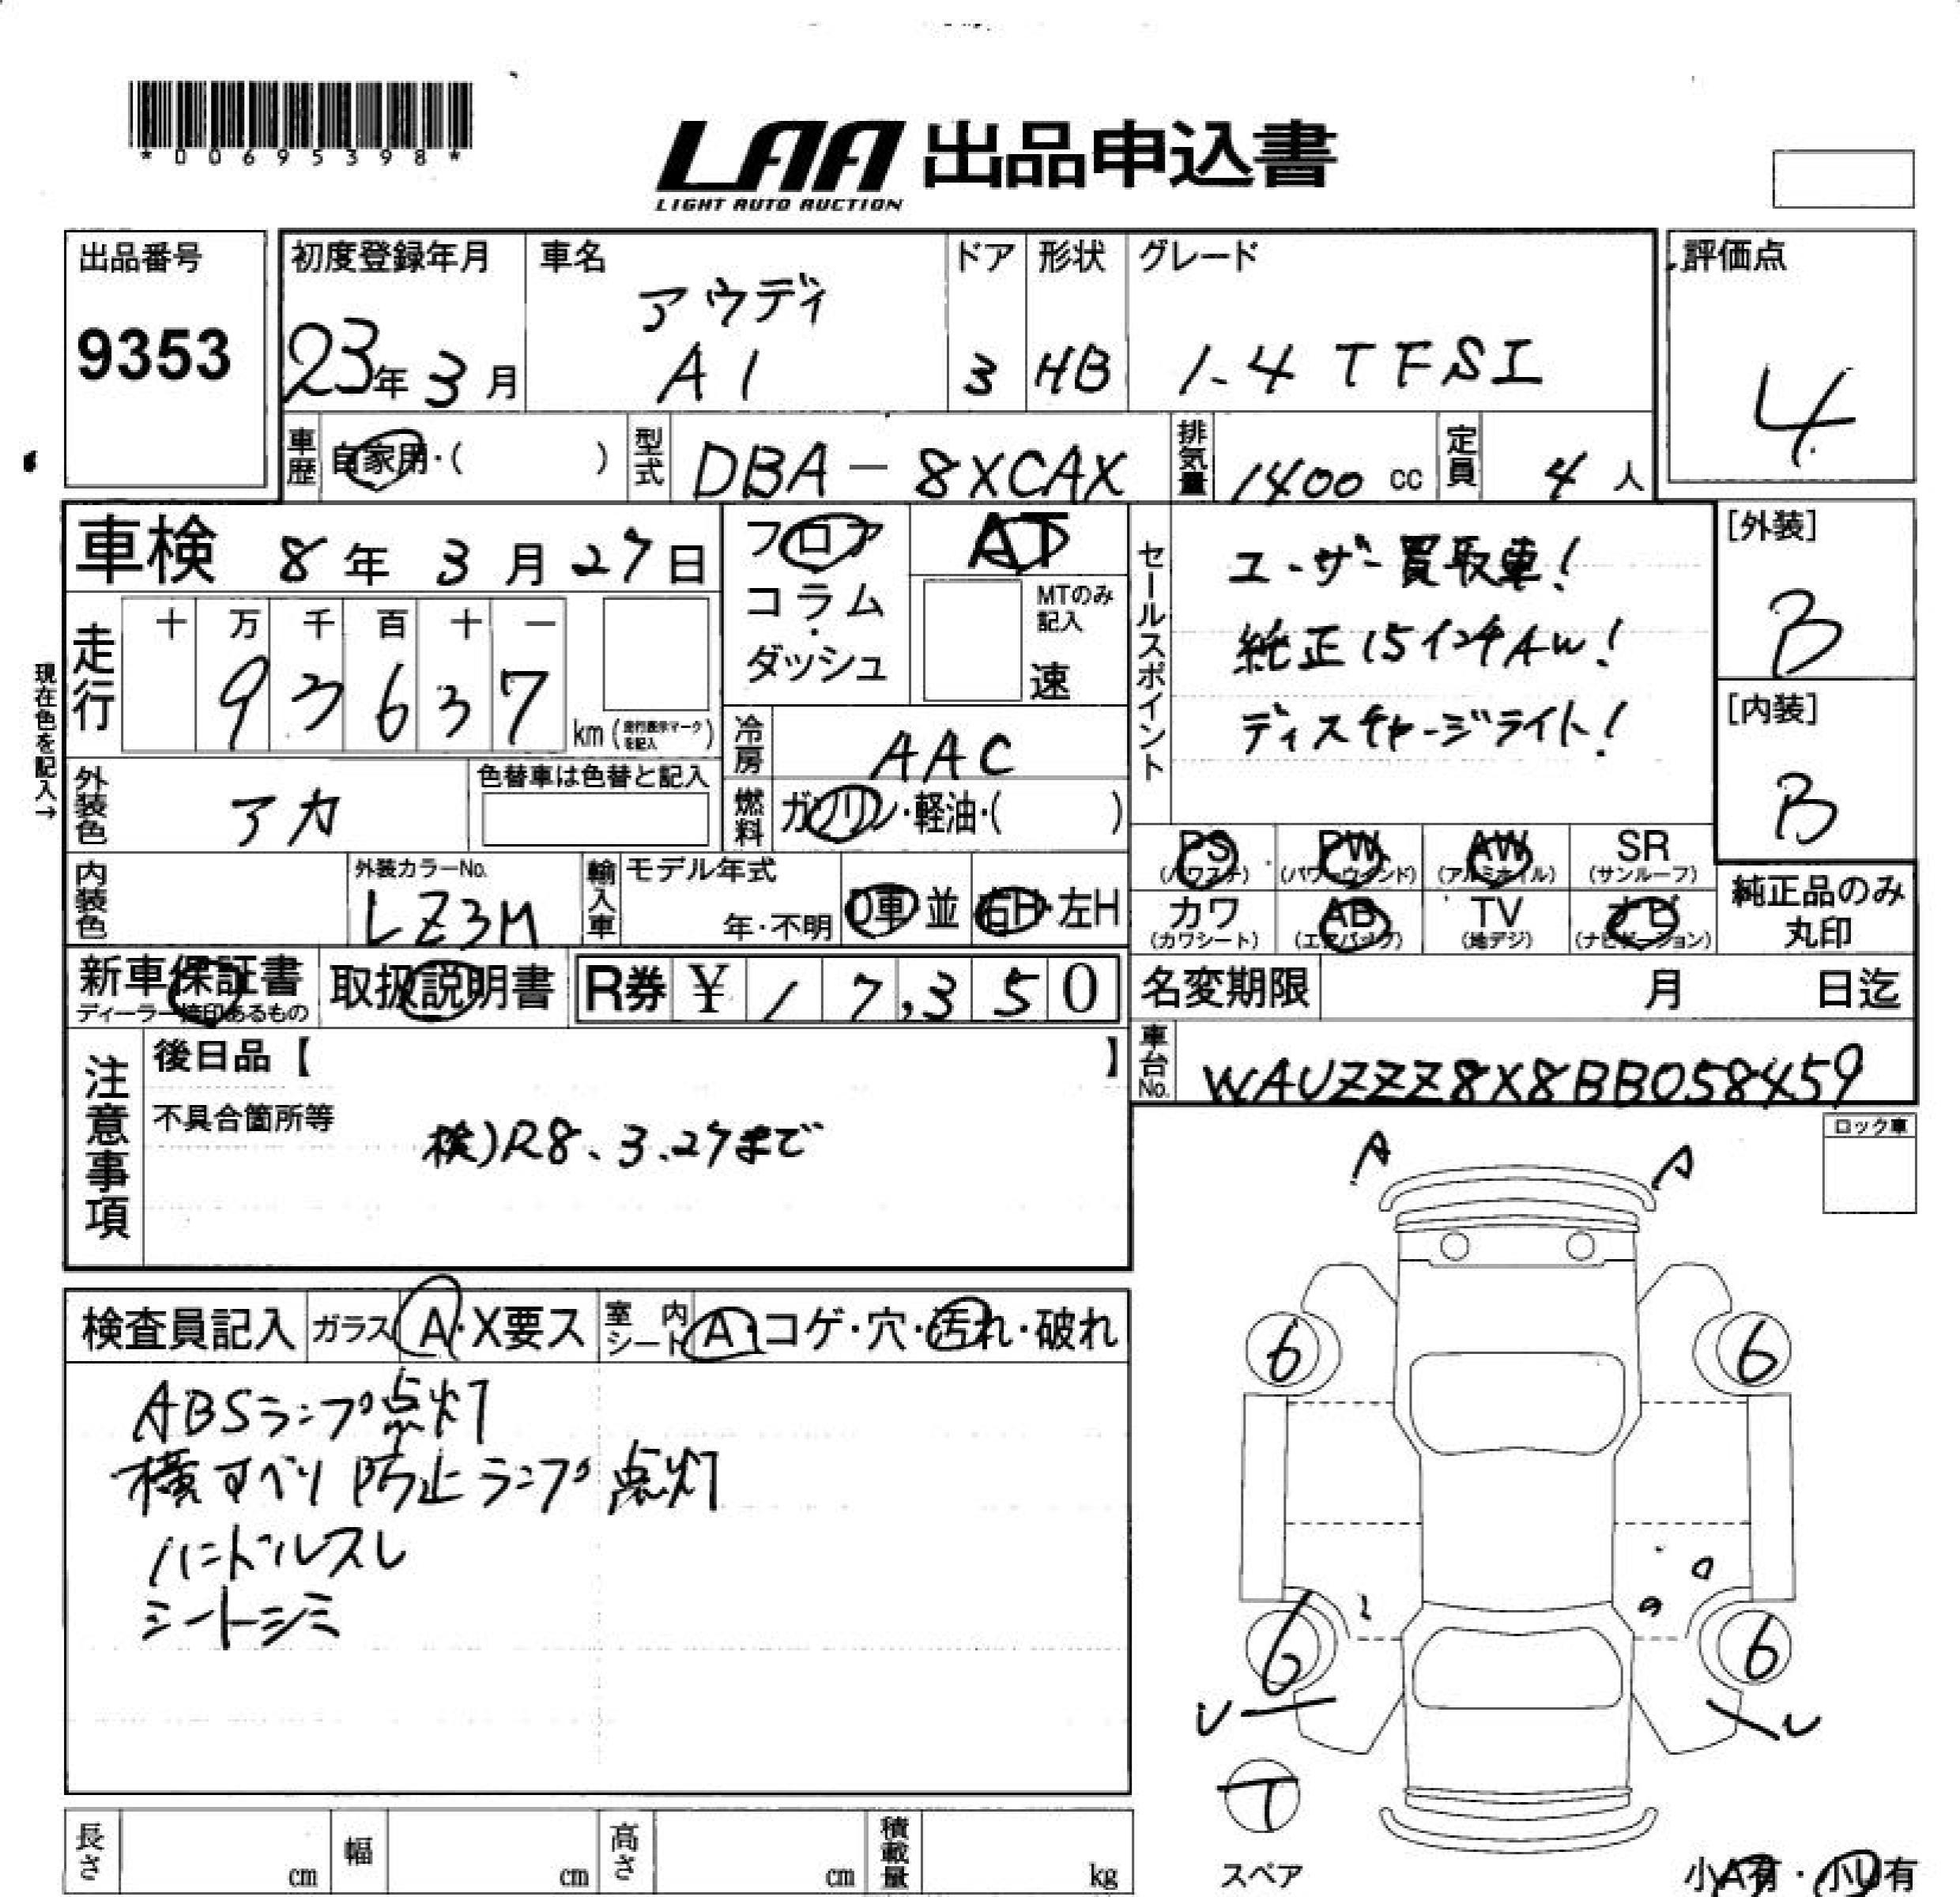 *00695398*
LAA 出品申込書
LIGHT AUTO AUCTION
出品番号
9353
初度登録年月
23年3月
車名
アウディ
A1
ドア
3
形状
HB
グレード
1.4 TFSI
評価点
4
車歴
自家用・( )
型式
DBA-8XCAX
排気量
1400 cc
定員
4人
車検 8年3月27日
フロア
コラム・
ダッシュ
AT
MTのみ
記入
速
セールスポイント
ユーザー買取車!
純正15インチAW!
ディスチャージライト!
[外装]
B
[内装]
B
現在色を記入→
走行
十 万 千 百 十 一
93637
km(走行表示マークを記入)
冷房
AAC
外装色
アカ
色替車は色替と記入
燃料
ガソリン・軽油・( )
PS (パワステ)
PW (パワーウインド)
AW (アルミホイル)
SR (サンルーフ)
カワ (カワシート)
AB (エアバック)
TV (地デジ)
ナビ (ナビゲーション)
純正品のみ
丸印
内装色
外装カラーNo.
LZ3M
輸入車
モデル年式
年・不明
D車・並
右H・左H
新車保証書
ディーラー捺印あるもの
取扱説明書
R券 ¥ 17,350
名変期限 月 日迄
車台No.
WAUZZZ8X8BB058459
注意事項
後日品【 】
不具合箇所等
検)R8.3.27まで
ロック車
A A
検査員記入
ガラス A・X要ス
室内シート A・コゲ・穴・汚れ・破れ
ABSランプ点灯
横すべり防止ランプ点灯
ハンドルスレ
シートシミ
6 6
6 6
U U
T
スペア
小A有・小U有
長さ cm
幅 cm
高さ cm
積載量 kg